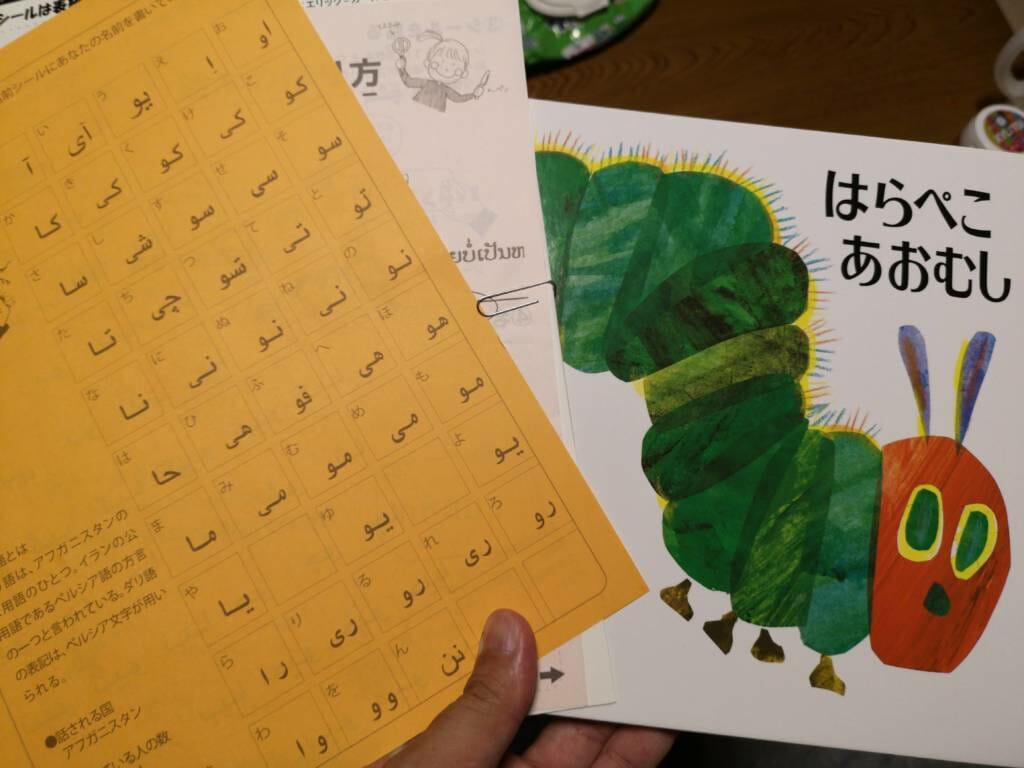 シールは表
エリック=カー
前シールにあなたの名前を書いて
آ い آی う یو え اِ お او
か کا き کی く کو け کی こ کو
さ سا し شی す سو せ سی そ سو
た تا ち چی つ تسو て تی と تو
な نا に نی ぬ نو ね نی の نو
は حا ひ هی ふ فو へ هی ほ هو
ま ما み می む مو め می も مو
や یا ゆ یو よ یو
ら را り ری る رو れ ری ろ رو
わ وا を وو ん نن
語とは
語は、アフガニスタンの
用語のひとつ。イランの公
用語であるペルシア語の方言
の一つと言われている。ダリ語
の表記は、ペルシア文字が用い
られる。
●話される国
アフガニスタン
ている人の数
方
ຍບໍ່ເປັນຫ
はらぺこ
あおむし